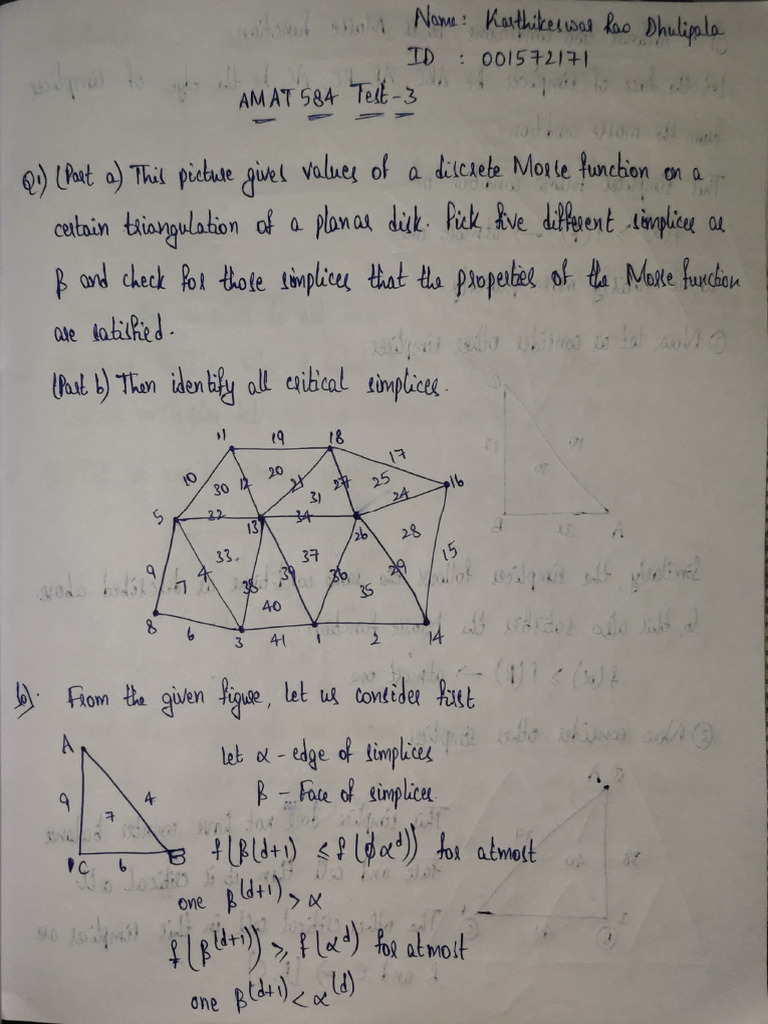 Name: Karthikeswar Rao Dhulipala
ID : 001572171
AMAT 584 Test-3
Q1) (Part a) This picture gives values of a discrete Morse function on a
certain triangulation of a planar disk. Pick five different simplices as
β and check for those simplices that the properties of the Morse function
are satisfied.
(Part b) Then identify all critical simplices.
11 19 18
17
10 30 12 20 21 31 27 25 24 16
5 32 13 34 26
28
9 7 4 33 38 39 37 36 35 29 15
40
8 6 3 41 1 2 14
From the given figure, let us consider first
A
let α - edge of simplices
9 4
β - Face of simplices
7
C 6 B
f(β(d+1) ≤ f(αᵈ)) for atmost
one β^(d+1) > α
f(β^(d+1)) ≥ f(αᵈ) for atmost
one β^(d+1) < α^(d)